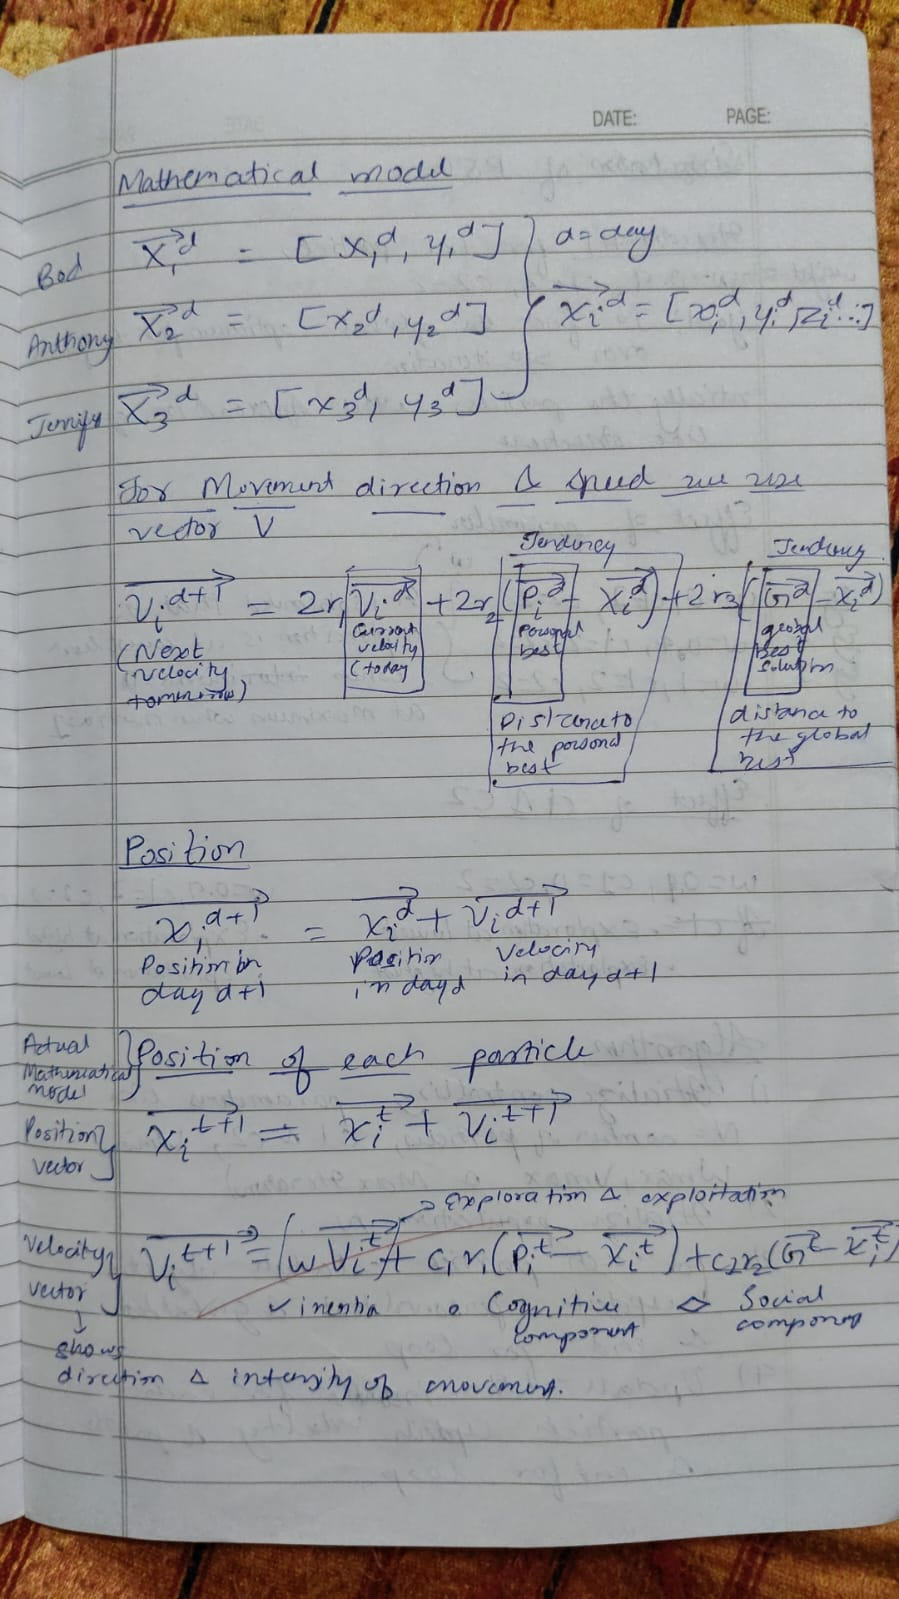 DATE: PAGE:
Mathematical model
Bod X₁^d = [x₁^d, y₁^d] } d = day
Anthony X₂^d = [x₂^d, y₂^d] xᵢ^d = [xᵢ^d, yᵢ^d, zᵢ^d ...]
Jennifr X₃^d = [x₃^d, y₃^d]
for Movement direction & speed we use
vector V
Tendency Tendency
Vᵢ^d+1 = 2r₁ Vᵢ^d + 2r₂ (Pᵢ^d - Xᵢ^d) + 2r₃ (G^d - Xᵢ^d)
(Next velocity tomorrow)
Current velocity (today
Personal best
global best solution
Distance to the personal best
distance to the global best
Position
xᵢ^d+1 = xᵢ^d + vᵢ^d+1
Position in day d+1
Position in day d
velocity in day d+1
Actual Mathematical model } Position of each particle
Position vector } xᵢ^t+1 = xᵢ^t + vᵢ^t+1
Exploration & exploitation
Velocity vector } Vᵢ^t+1 = (w Vᵢ^t) + c₁r₁(Pᵢ^t - Xᵢ^t) + c₂r₂(G^t - Xᵢ^t)
inentia Cognitive component Social component
↓
shows
direction & intensity of movement.